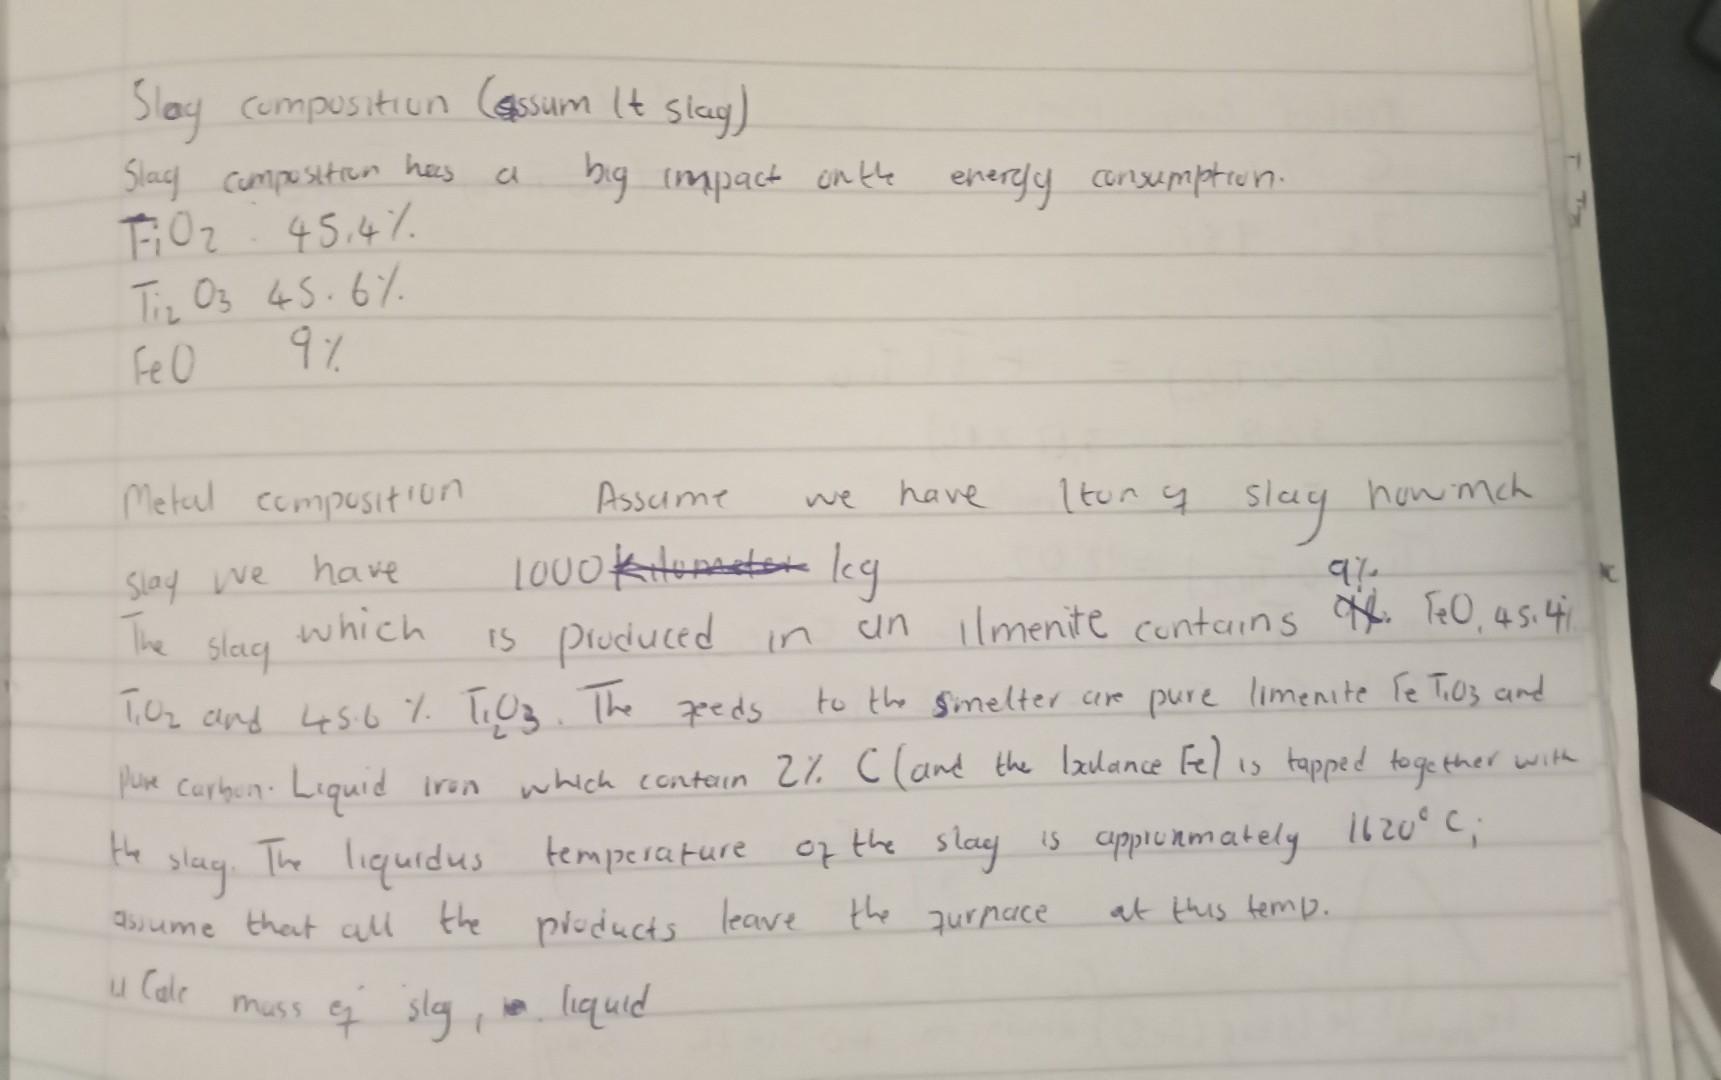 Slag composition (assum 1t slag)
Slag composition has a big impact on the energy consumption.
TiO2 45.4%
Ti2O3 45.6%
FeO 9%
Metal composition Assume we have 1ton of slag how mch
slag we have 1000 kg
9%
The slag which is produced in an ilmenite contains FeO, 45.4%
TiO2 and 45.6 % Ti2O3. The feeds to the smelter are pure limenite FeTiO3 and
pure carbon. Liquid iron which contain 2% C (and the balance Fe) is tapped together with
the slag. The liquidus temperature of the slag is approxmately 1620° C;
assume that all the products leave the furnace at this temp.
Calc mass of slg, liquid